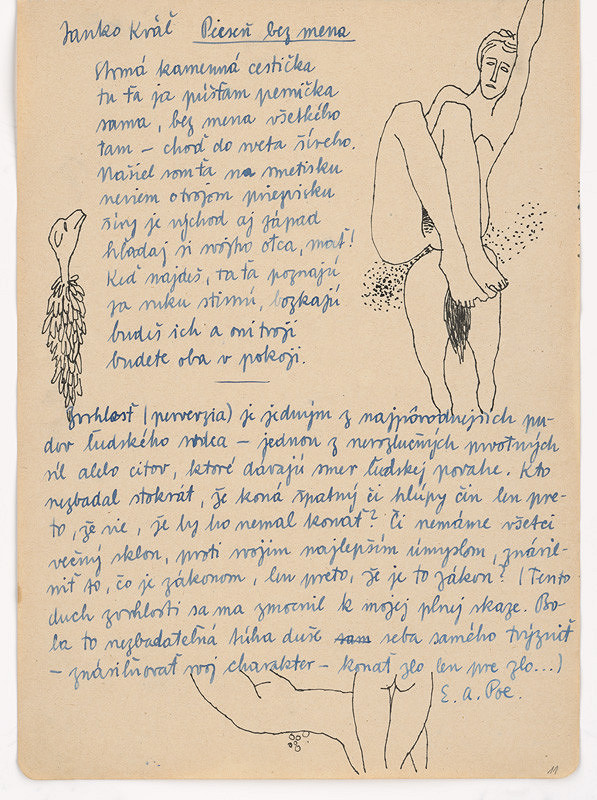 Janko Kráľ Pieseň bez mena
Strmá kamenná cestička
tu ťa ja púšťam pesnička
sama, bez mena všetkého
tam – choď do sveta šíreho.
Našiel som ťa na smetisku
neviem o tvojom priepisku
šíry je východ aj západ
hľadaj si svojho otca, mať!
Keď najdeš, ta ťa poznajú
za ruku stisnú, bozkajú
budeš ich a oni tvoji
budete oba v pokoji.
Zvrhlosť (perverzia) je jedným z najpôvodnejších pu-
dov ľudského srdca – jednou z nerozlučných prvotných
síl alebo citov, ktoré dávajú smer ľudskej povahe. Kto
nezbadal stokrát, že koná špatný či hlúpy čin len pre-
to, že vie, že by ho nemal konať? Či nemáme všetci
večný sklon, proti svojim najlepším úmyslom, znásil-
niť to, čo je zákonom, len preto, že je to zákon? (Tento
duch zvrhlosti sa ma zmocnil k mojej plnej skaze. Bo-
la to nezbadateľná túha duše sam seba samého trýzniť
– znásilňovať svoj charakter – konať zlo len pre zlo...)
E. A. Poe.
11